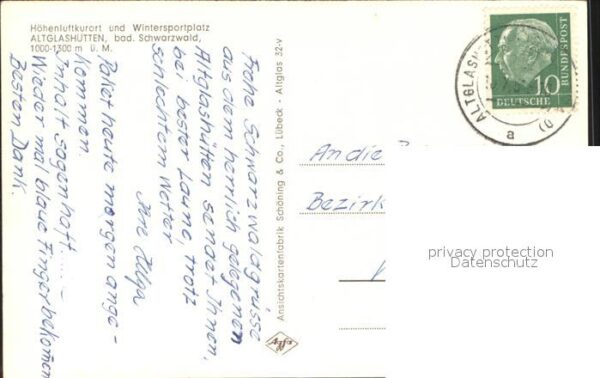 Höhenluftkurort und Wintersportplatz
ALTGLASHÜTTEN, bad. Schwarzwald,
1000-1300 m ü. M.
Frohe Schwarzwaldgrüsse
aus dem herrlich gelegenen
Altglashütten sendet Ihnen,
bei bester Laune, trotz
schlechtem Wetter
Ihre Helga
Paket heute morgen ange-
kommen.
Inhalt sagenhaft.....-
Wieder mal blaue Finger bekommen
Besten Dank.
Ansichtskartenfabrik Schöning & Co., Lübeck - Altglas 32-v
Agfa
An die
Bezirk
10
DEUTSCHE
BUNDESPOST
ALTGLASH
a
privacy protection
Datenschutz